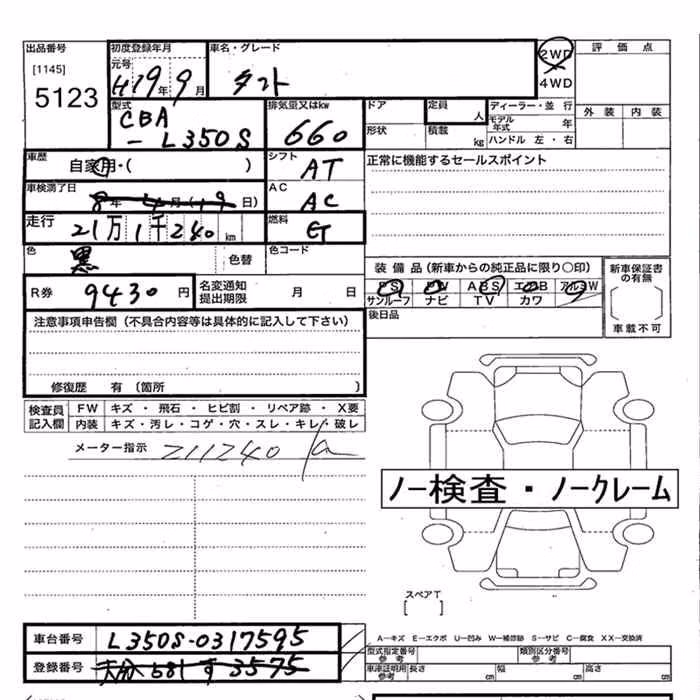 出品番号 初度登録年月 車名・グレード 2WD 評価点
[1145] 元号
5123 H19年 9月 タント 4WD
型式 排気量又はkw ドア 定員 人 ディーラー・並行 外装 内装
CBA
-L350S 660 形状 積載 kg モデル年式 年
ハンドル 左・右
車歴 自家用・( ) シフト AT 正常に機能するセールスポイント
車検満了日 8年 4月(19日) AC AC
走行 21万1千240km 燃料 G
色 黒 色替 色コード
装備品(新車からの純正品に限り○印) 新車保証書の有無
R券 9430円 名変通知提出期限 月 日 PS PW ABS エアB アルミW [ ]
サンルーフ ナビ TV カワ 車載不可
注意事項申告欄(不具合内容等は具体的に記入して下さい) 後日品
修復歴 有 (箇所 )
検査員記入欄 FW キズ・飛石・ヒビ割・リペア跡・X要
内装 キズ・汚レ・コゲ・穴・スレ・キレ・破レ
メーター指示 211240 km
ノー検査・ノークレーム
スペアT
[ ]
車台番号 L350S-0317595 A-キズ E-エクボ U-凹み W-補修跡 S-サビ C-腐食 XX-交換済
型式指定番号 参考 類別区分番号 参考
登録番号 581 す 3575 車庫証明用参考 長さ cm 幅 cm 高さ cm